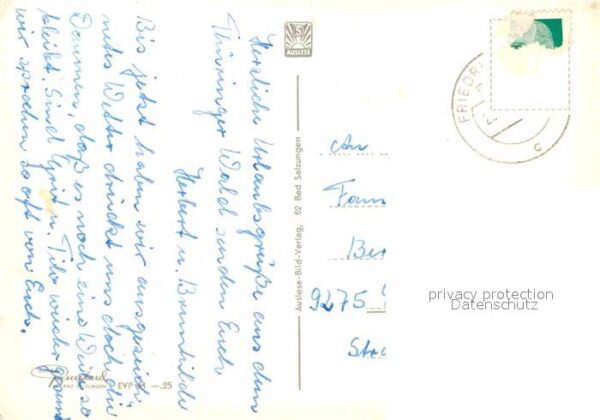 Herzliche Urlaubsgrüße aus dem
Thüringer Wald senden Euch
Herbert u. Brunhilde
Bis jetzt haben wir ausgezeich-
netes Wetter drückt uns doch die
Daumen, daß es noch eine Weile so
bleibt. Sind Grit u. Tilo wieder gesund
wir sprachen so oft von Euch.
5
AUSLESE
Auslese-Bild-Verlag, 62 Bad Salzungen
BAD SALZUNGEN EVP M —.25
FRIEDRI
c
An
Fam
Ber
9275
Stra
privacy protection
Datenschutz